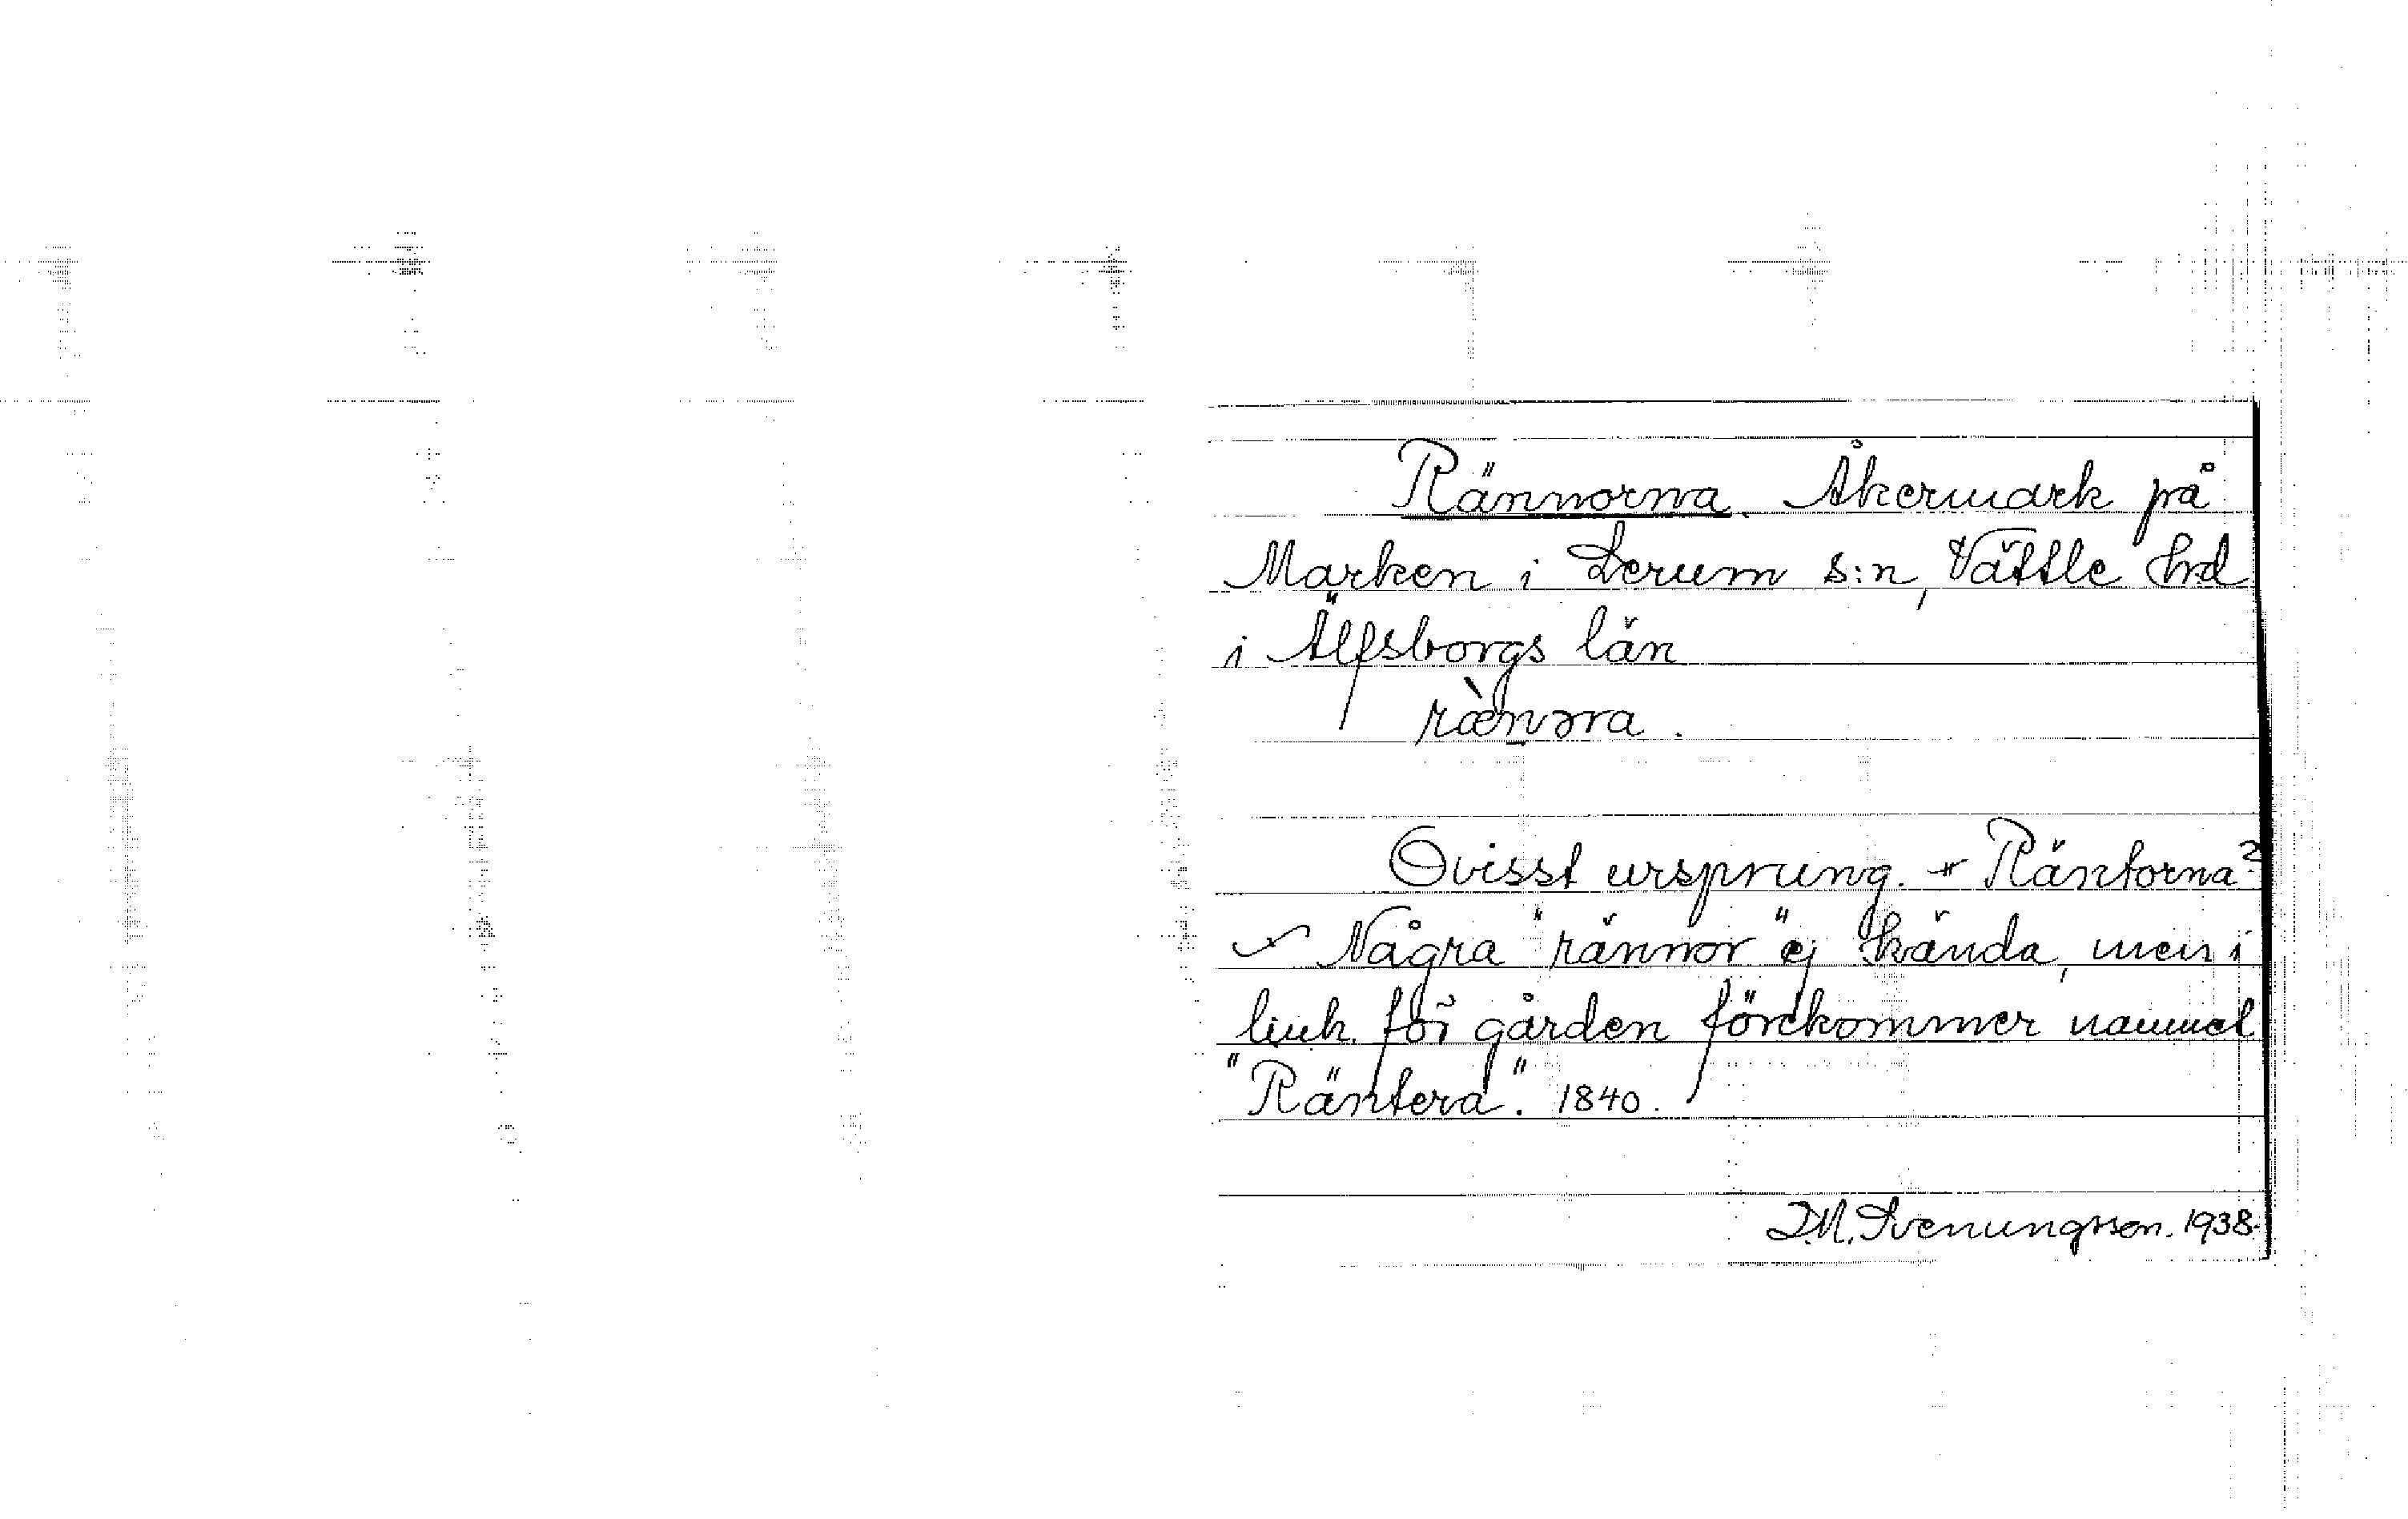 Rännorna. Åkermark på
Marken i Lerum s:n, Vättle hrd
i Älfsborgs län
ræ̀nəra.
Ovisst ursprung. * Räntorna?
Några "rännor" ej kända, men i
liuk. för gården förekommer namnet
"Räntera". 1840.
D.M. Svenungsson. 1938.